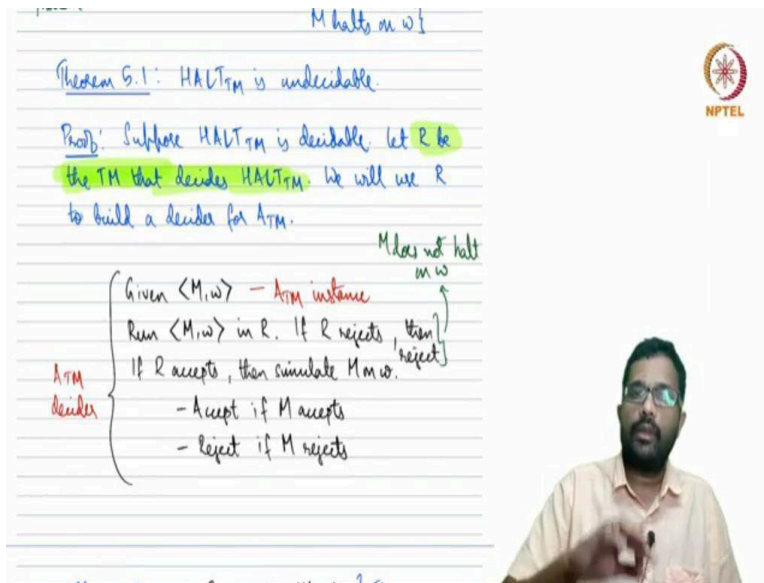 M halts on w}
Theorem 5.1: HALT_TM is undecidable.
Proof: Suppose HALT_TM is decidable. Let R be
the TM that decides HALT_TM. We will use R
to build a decider for A_TM.
M does not halt
on w
Given ⟨M,w⟩ - A_TM instance
Run ⟨M,w⟩ in R. If R rejects, then
reject
If R accepts, then simulate M on w.
A_TM
decider
- Accept if M accepts
- Reject if M rejects
NPTEL